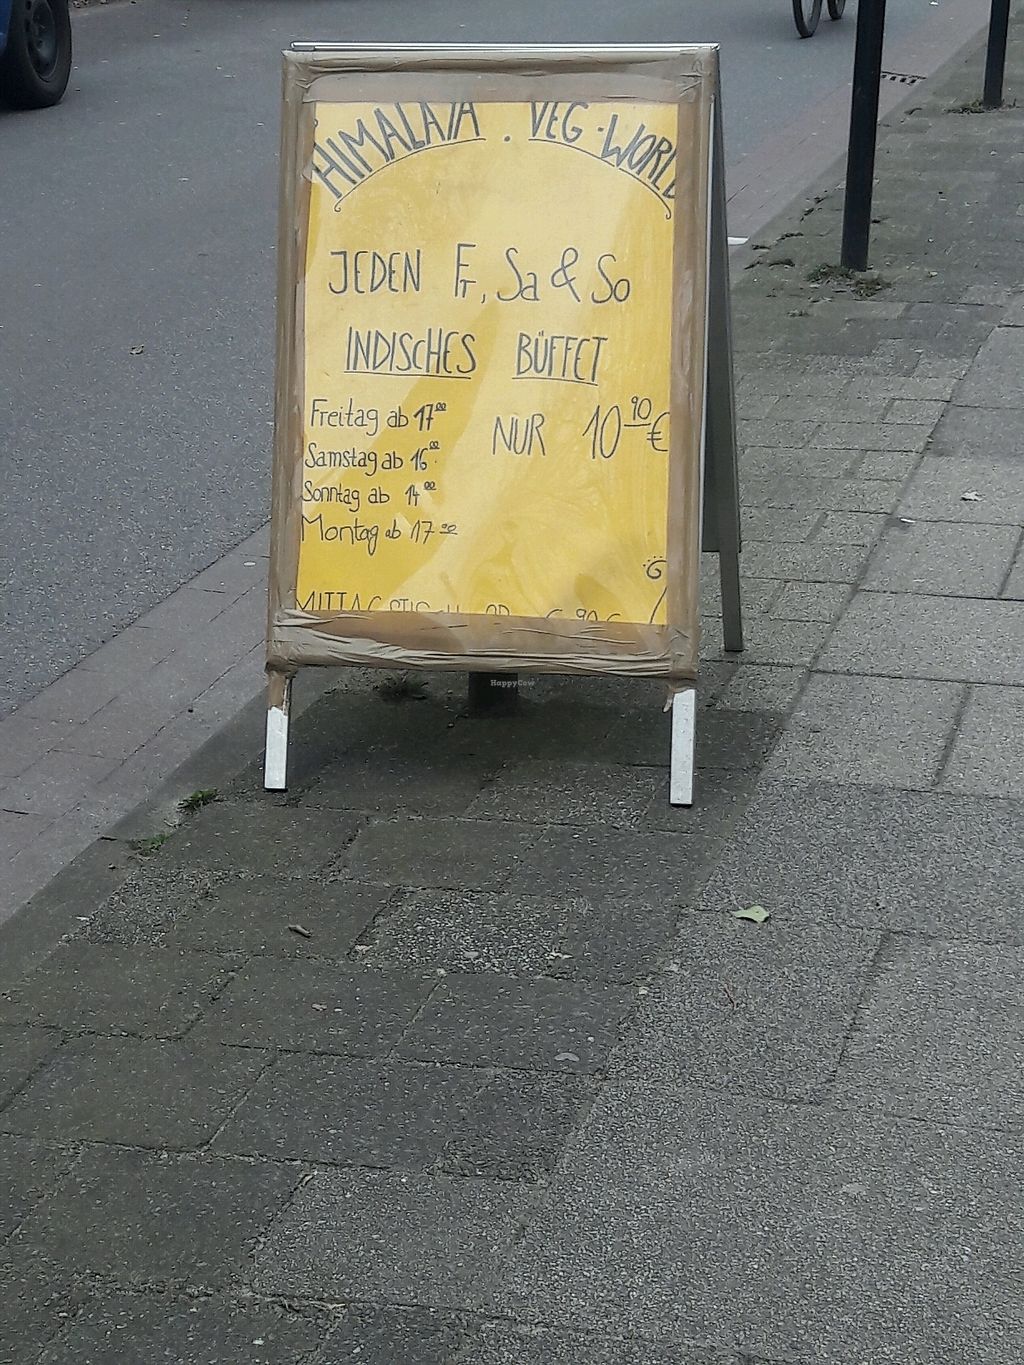 HIMALAJA . VEG-WORLD
JEDEN Fr, Sa & So
INDISCHES BÜFFET
Freitag ab 17⁰⁰
NUR 10⁹⁰€
Samstag ab 16⁰⁰
Sonntag ab 14⁰⁰
Montag ab 17⁰⁰
MITTAGSTISCH
HappyCow